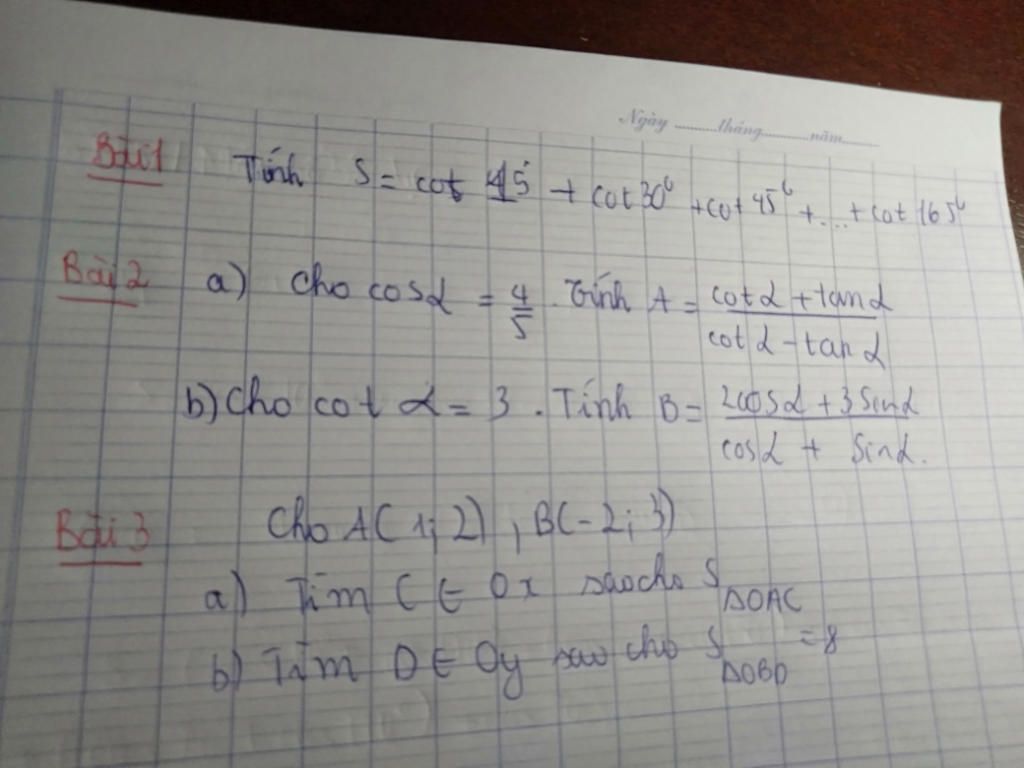 Ngày ........tháng..........năm........
Bài 1 Tính S = cot 15 + cot 30⁰ + cot 45⁰ + ... + cot 165⁰
Bài 2 a) Cho cosα = 4/5 . Tính A = (cotα + tanα)/(cotα - tanα)
b) Cho cot α = 3 . Tính B = (2cosα + 3sinα)/(cosα + sinα).
Bài 3 Cho A(1; 2) , B(-2; 3)
a) Tìm C ∈ Ox sao cho S ΔOAC
b) Tìm D ∈ Oy sao cho S ΔOBD = 8